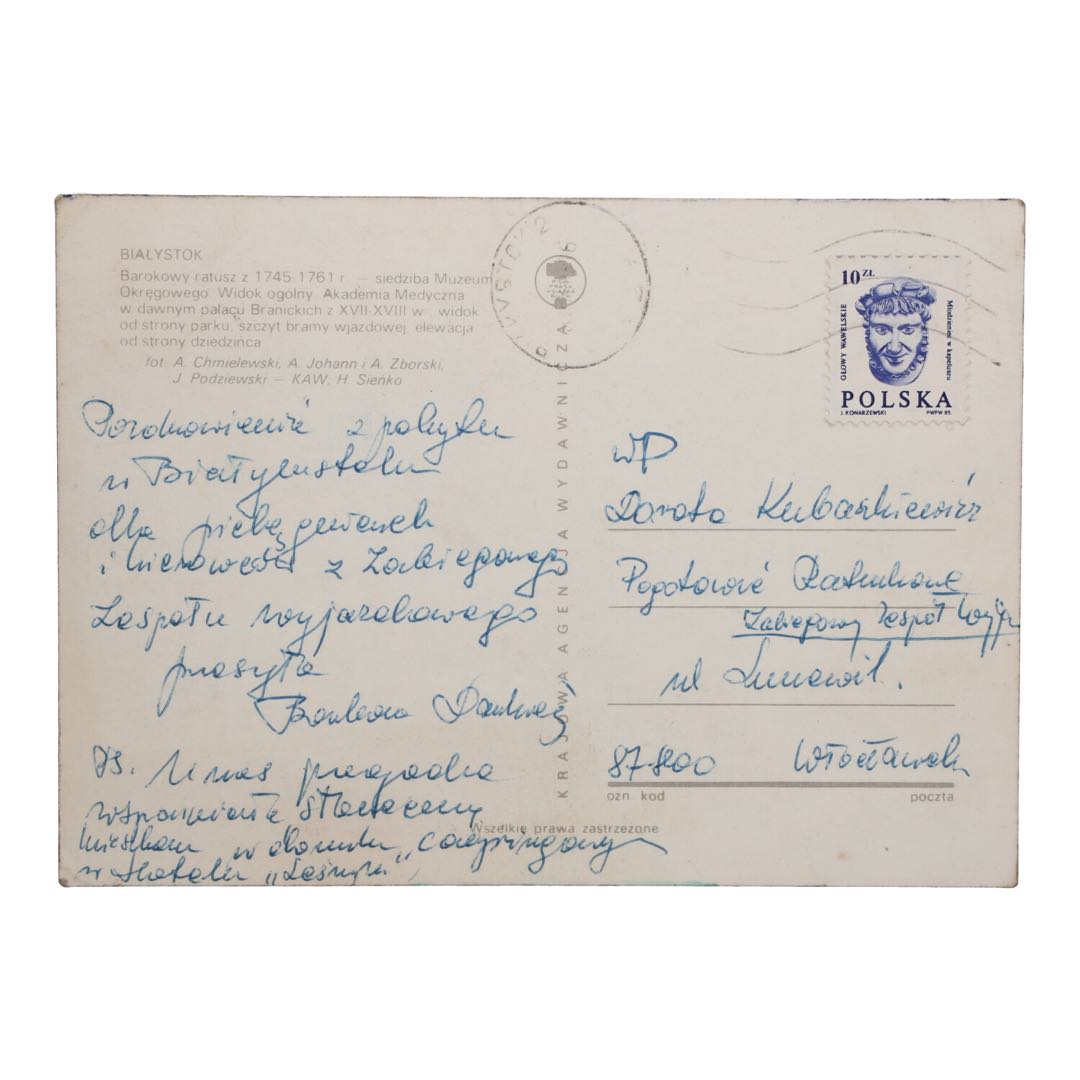 BIAŁYSTOK
Barokowy ratusz z 1745-1761 r — siedziba Muzeum
Okręgowego. Widok ogólny. Akademia Medyczna
w dawnym pałacu Branickich z XVII-XVIII w., widok
od strony parku, szczyt bramy wjazdowej, elewacja
od strony dziedzińca
fot. A. Chmielewski, A. Johann i A. Zborski,
J. Podziewski — KAW, H. Sieńko
Pozdrowienia z pobytu
w Białymstoku
dla pielęgniarek
i kierowców z Zabiegowego
Zespołu wyjazdowego
przesyła
Barbara
PS. U nas pogoda
wspaniała słoneczna
Mieszkam w domku „campingowym
w Hotelu „Leśnym"
KRAJOWA AGENCJA WYDAWNICZA
Wszelkie prawa zastrzeżone
10 ZŁ
GŁOWY WAWELSKIE
Młodzieniec w kapeluszu
POLSKA
J. KONARZEWSKI PWPW 85
WP
Dorota Kubaszkiewicz
Pogotowie Ratunkowe
Zabiegowy Zespół Wyj
ul
87-800 Włocławek
ozn. kod poczta